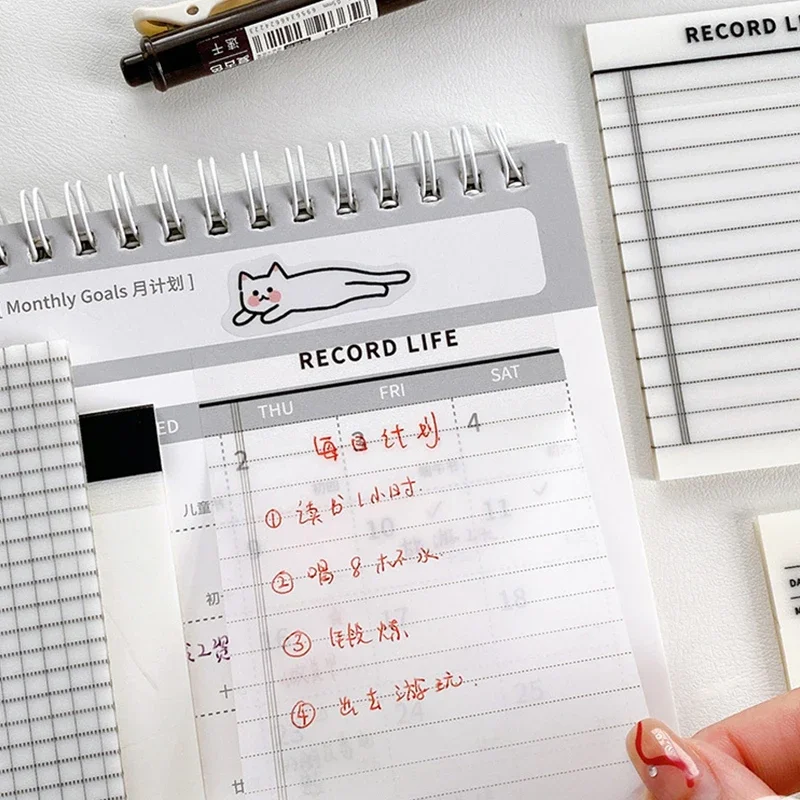 速干
6953486624223
RECORD LI
Monthly Goals 月计划 ]
RECORD LIFE
ED
THU
FRI
SAT
2
3
4
每日计划
儿童
① 读书1小时
10
11
② 喝8杯水
初
17
18
③ 锻炼
工资
十
④ 出去游玩
24
25
廿
DA